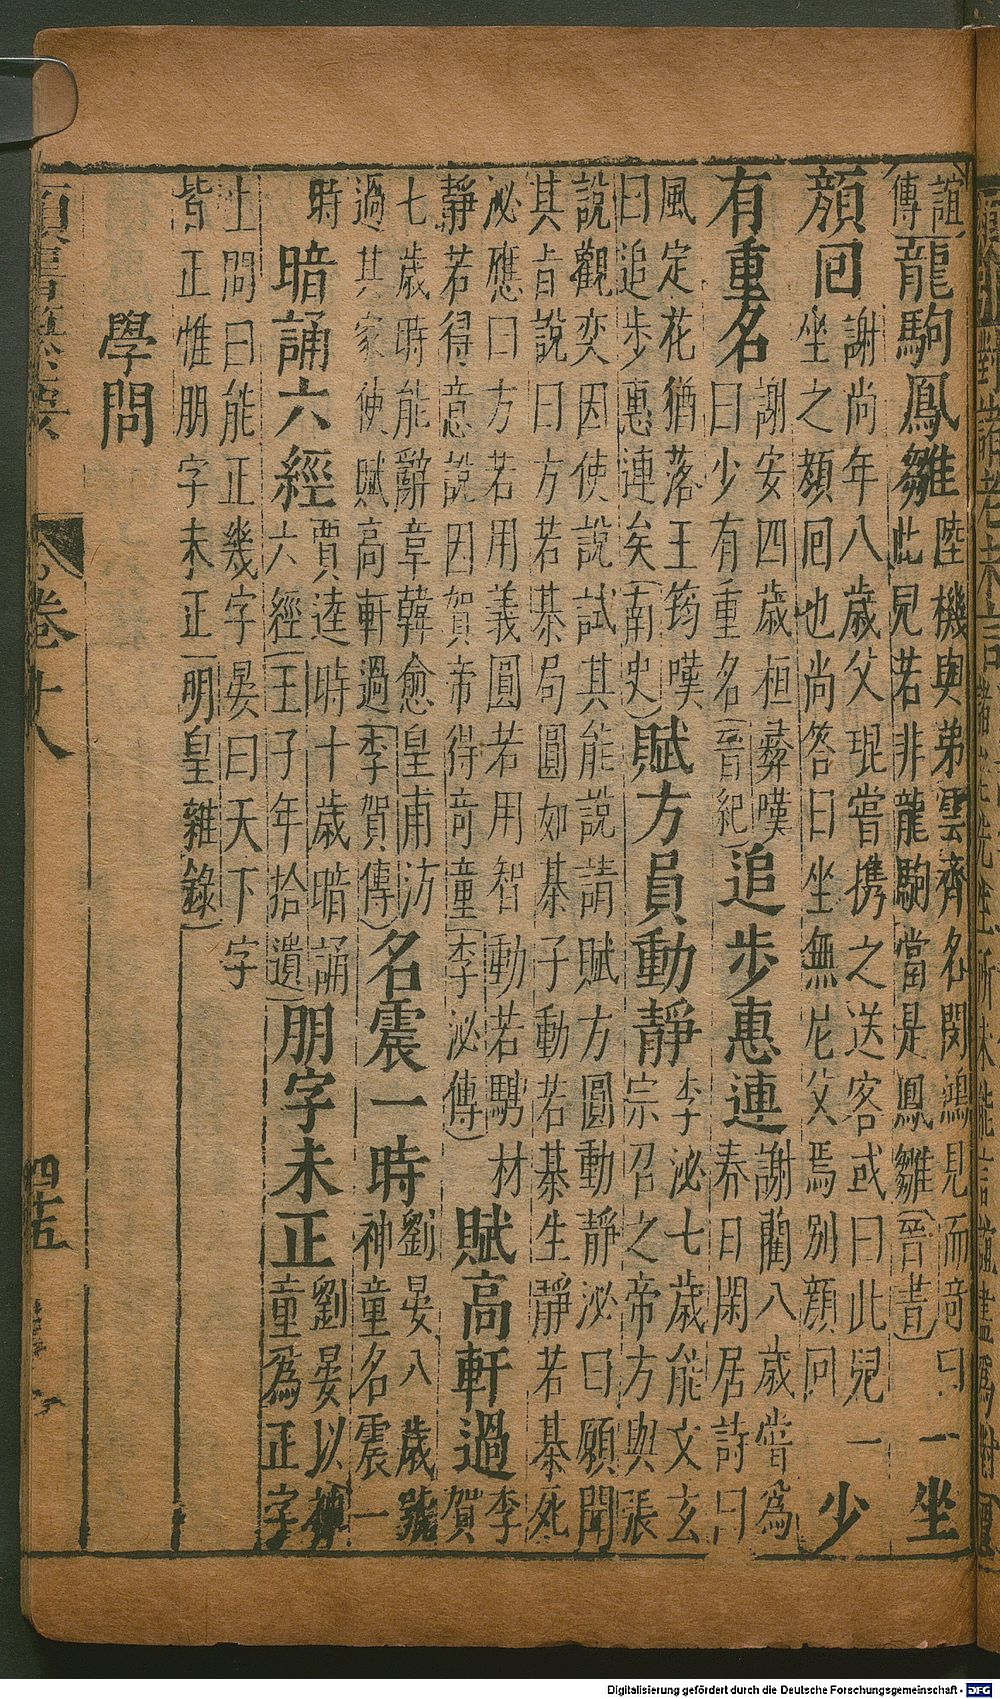 誼
傳
龍駒鳳雛
陸機與弟雲齊名閔鴻見而竒曰
此兒若非龍駒當是鳳雛(晉書)
一坐
顔回
謝尚年八歲父琨嘗携之送客或曰此兒一
坐之顔回也尚答曰坐無尼父焉别顔回
少
有重名
謝安四歲桓彛嘆
曰少有重名(晉紀)
追步惠連
謝藺八歲嘗為
春日閑居詩曰
風定花猶落王筠嘆
曰追步惠連矣(南史)
賦方員動靜
李泌七歲能文玄
宗召之帝方與張
說觀奕因使說試其能說請賦方圓動靜泌曰願聞
其旨說曰方若棊局圓如棊子動若棊生靜若棊死
泌應曰方若用義圓若用智動若騁材
靜若得意說因賀帝得竒童(李泌傳)
賦高軒過
李
賀
七歲時能辭章韓愈皇甫汸
過其家使賦高軒過(李賀傳)
名震一時
劉晏八歲號
神童名震一
時
暗誦六經
賈逵時十歲暗誦
六經(王子年拾遺)
朋字未正
劉晏以神
童為正字
上問曰能正幾字晏曰天下字
皆正惟朋字未正(明皇雜錄)
學問
卷十八
四十五
Digitalisierung gefördert durch die Deutsche Forschungsgemeinschaft - DFG